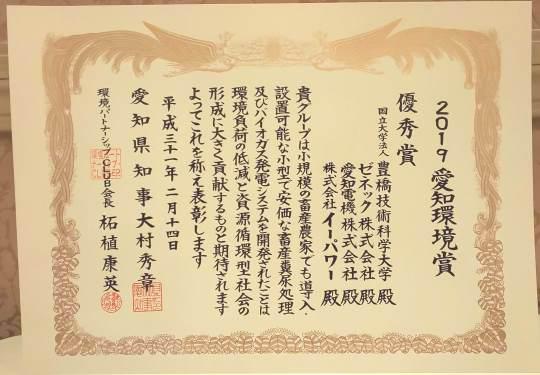 2019 愛知環境賞
優秀賞
国立大学法人 豊橋技術科学大学 殿
ゼネック株式会社 殿
愛知電機株式会社 殿
株式会社イーパワー 殿
貴グループは小規模の畜産農家でも導入・
設置可能な小型で安価な畜産糞尿処理
及びバイオガス発電システムを開発されたことは
環境負荷の低減と資源循環型社会の
形成に大きく貢献するものと期待されます
よってこれを称え表彰します
平成三十一年二月十四日
愛知県知事 大村秀章
環境パートナーシップCLUB会長 柘植康英